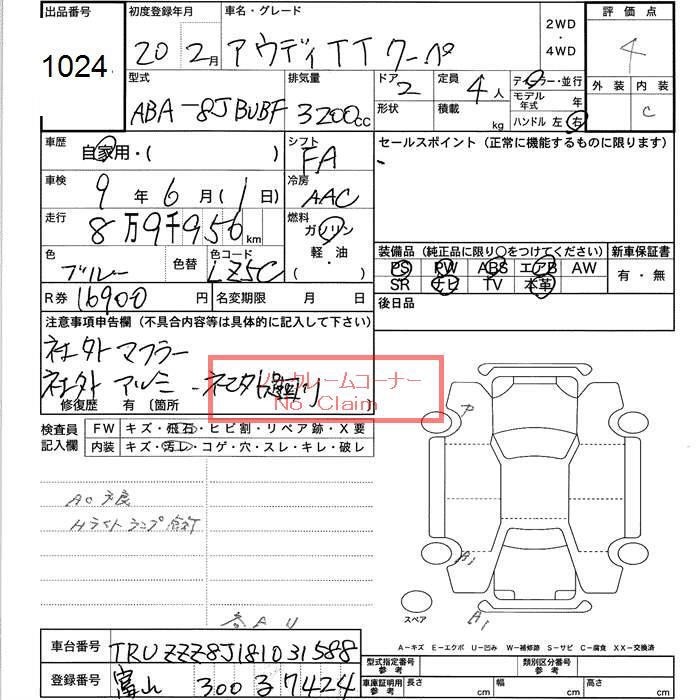 出品番号 初度登録年月 車名・グレード 評価点
1024 20年2月 アウディTTクーペ 2WD・4WD 4
型式 排気量 ドア 定員 ディーラー・並行 外装 内装
ABA-8JBUBF 3200cc 2 4人 モデル年式 年 C
形状 積載 kg ハンドル 左 右
車歴 自家用・( ) シフト FA セールスポイント (正常に機能するものに限ります)
車検 9年6月(1日) 冷房 AAC
走行 8万9千956km 燃料 ガソリン・軽・油
色 ブルー 色替 色コード LZ5C
装備品 (純正品に限り○をつけてください) 新車保証書
PS PW ABS エアB AW 有・無
SR ナビ TV 本革
R券 16900円 名変期限 月 日 後日品
注意事項申告欄 (不具合内容等は具体的に記入して下さい)
社外マフラー
社外アルミ
ノークレームコーナー
No Claim
修復歴 有 〔箇所
検査員記入欄 FW キズ・飛石・ヒビ割・リペア跡・X要
内装 キズ・汚レ・コゲ・穴・スレ・キレ・破レ
AC不良
Hライトランプ点灯
スペア
A1
A-キズ E-エクボ U-凹み W-補修跡 S-サビ C-腐食 XX-交換済
車台番号 TRUZZZ8J181031588 型式指定番号 参考 類別区分番号 参考
登録番号 富山 300 る 7424 車庫証明用 参考 長さ cm 幅 cm 高さ cm